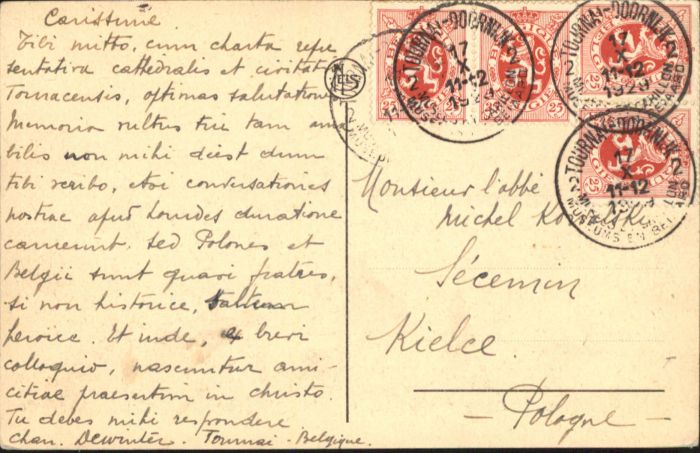 Carissime
Tibi mitto, cum charta repre
sentativa cathedralis et civitatis
Tornacensis, optimas salutationes
Memoria vultus tui tam ama
bilis non mihi deest dum
tibi scribo, etsi conversationes
nostrae apud Lourdes duratione
caruerunt. Sed Polones et
Belgii sunt quasi fratres,
si non historice, saltem
heroice. Et inde, ex brevi
colloquio, nascuntur ami-
citiae praesertim in Christo.
Tu debes mihi respondere
Chan. Dewinter. Tournai - Belgique.
Monsieur l'abbé
Michel
Sécemin
Kielce
- Pologne -
TOURNAI-DOORNIJK
2 17 2
X
11-12
1929
TOURNAI-DOORNIJK
2 17 2
X
11-12
1929
TOURNAI-DOORNIJK
2 17 2
X
11-12
1929
NELS
25
25
25
25